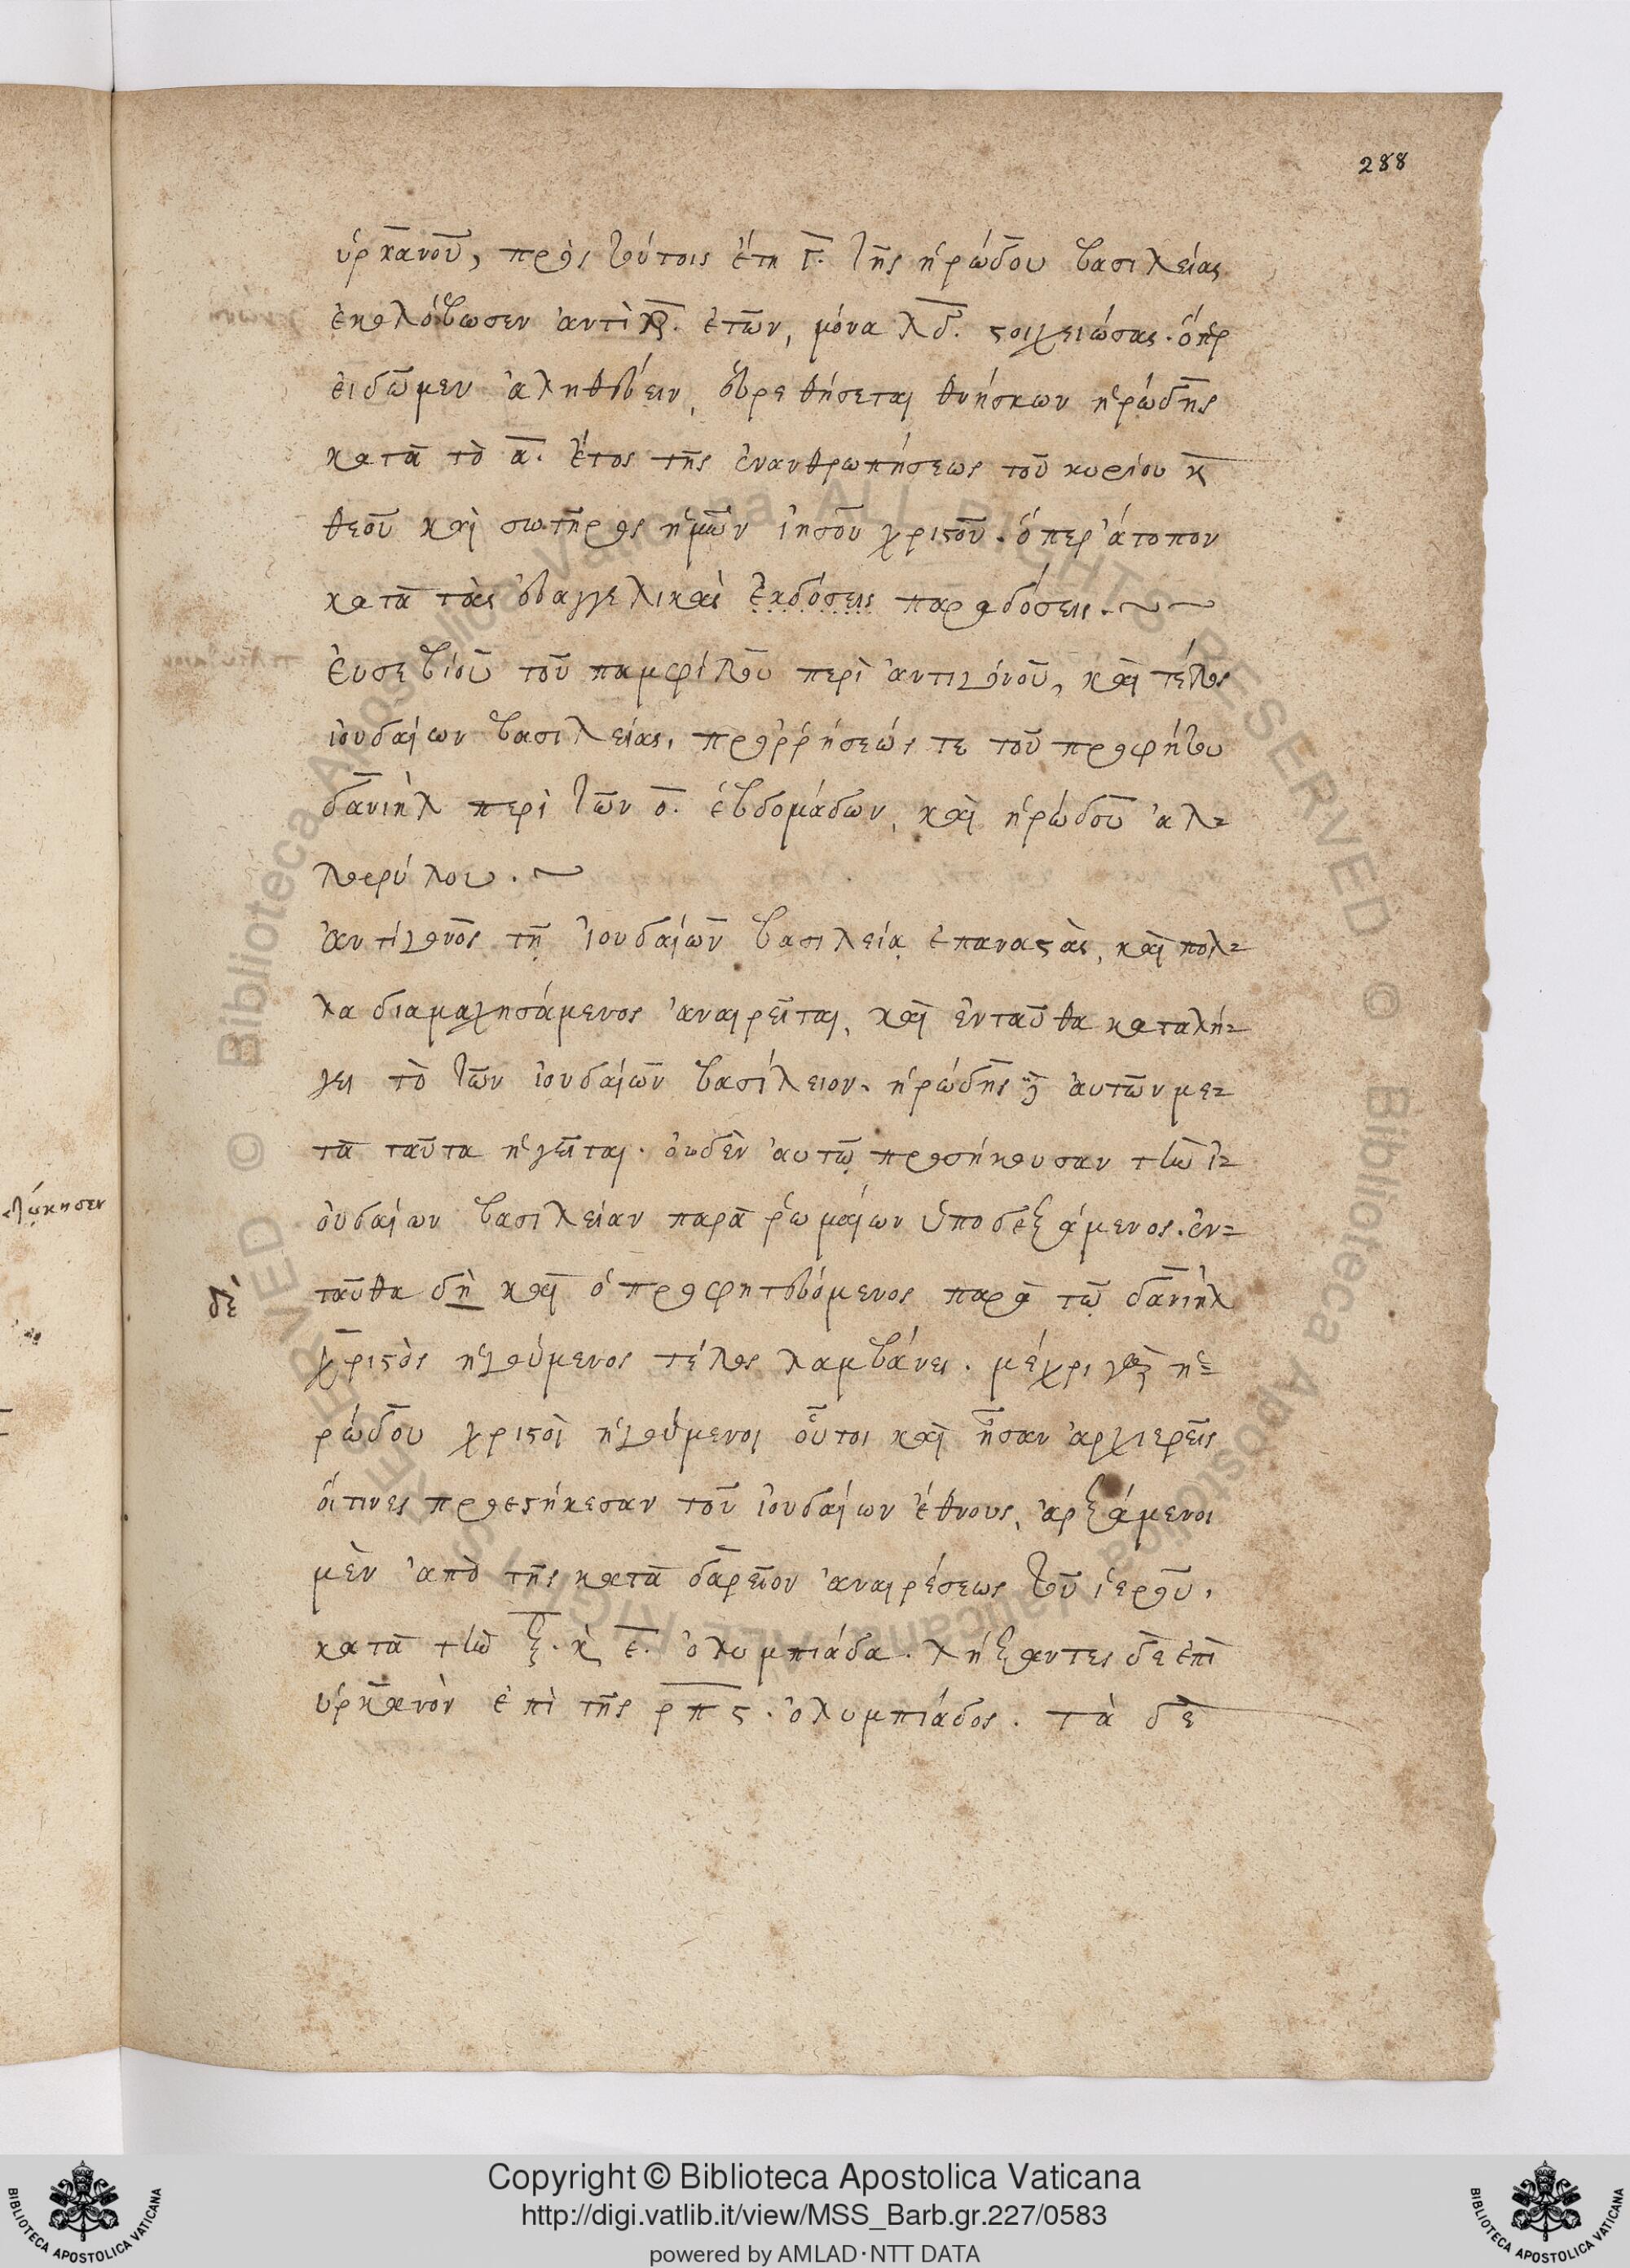 288
ὑρκανοῦ, πρὸς τούτοις ἔτη γ̅. τῆς ἡρώδου βασιλείας
ἐκολόβωσεν ἀντὶ λζ̅. ἐτῶν, μόνα λδ̅. στοιχειώσας. ὅπερ
εἰ δῶμεν ἀληθεύειν, εὑρεθήσεται θνήσκων ἡρώδης
κατὰ τὸ α̅. ἔτος τῆς ἐνανθρωπήσεως τοῦ κυρίου κ̀
θεοῦ καὶ σωτῆρος ἡμῶν ἰησοῦ χριστοῦ. ὅπερ ἄτοπον
κατὰ τὰς εὐαγγελικὰς ἐκδόσεις παραδόσεις. ~ ~
Ἐυσεβίου τοῦ παμφίλου περὶ ἀντιγόνου, καὶ τέλος
ἰουδαίων βασιλείας, προῤῥήσεώς τε τοῦ προφήτου
δανιὴλ περὶ τῶν ο̅. ἑβδομάδων, καὶ ἡρώδου ἀλ=
λοφύλου. ~
ἀντίγονος τῇ ἰουδαίων βασιλείᾳ ἐπαναστὰς, καὶ πολ=
λα διαμαχησάμενος ἀναιρεῖται, καὶ ἐνταῦθα καταλή=
γει τὸ τῶν ἰουδαίων βασίλειον. ἡρώδης δὲ αὐτῶν με=
τὰ ταῦτα ἡγεῖται. οὐδὲν αὐτῷ προσήκουσαν τὴν ἰ=
ουδαίων βασιλείαν παρὰ ῥωμαίων ὑποδεξάμενος. ἐν=
ταῦθα δὴ καὶ ὁ προφητευόμενος παρὰ τῷ δανιὴλ
δὲ
χριστὸς ἡγούμενος τέλος λαμβάνει. μέχρι γὰρ ἡ=
ρώδου χριστοὶ ἡγούμενοι οὗτοι καὶ ἦσαν ἀρχιερεῖς
οἵτινες προεστήκεσαν τοῦ ἰουδαίων ἔθνους, ἀρξάμενοι
μὲν ἀπὸ τῆς κατὰ δαρεῖον ἀναιρέσεως τοῦ ἱεροῦ,
κατὰ τὴν ξ̅. κ̀ ε̅. ὀλυμπιάδα. λήξαντες δὲ ἐπὶ
ὑρκανὸν ἐπὶ τῆς ρ̅π̅ς̅. ὀλυμπιάδος. τὰ δὲ
Biblioteca Apostolica Vaticana ALL RIGHTS RESERVED © Biblioteca Apostolica Vaticana ALL RIGHTS RESERVED ©
Copyright © Biblioteca Apostolica Vaticana
http://digi.vatlib.it/view/MSS_Barb.gr.227/0583
powered by AMLAD·NTT DATA
BIBLIOTECA APOSTOLICA VATICANA
BIBLIOTECA APOSTOLICA VATICANA